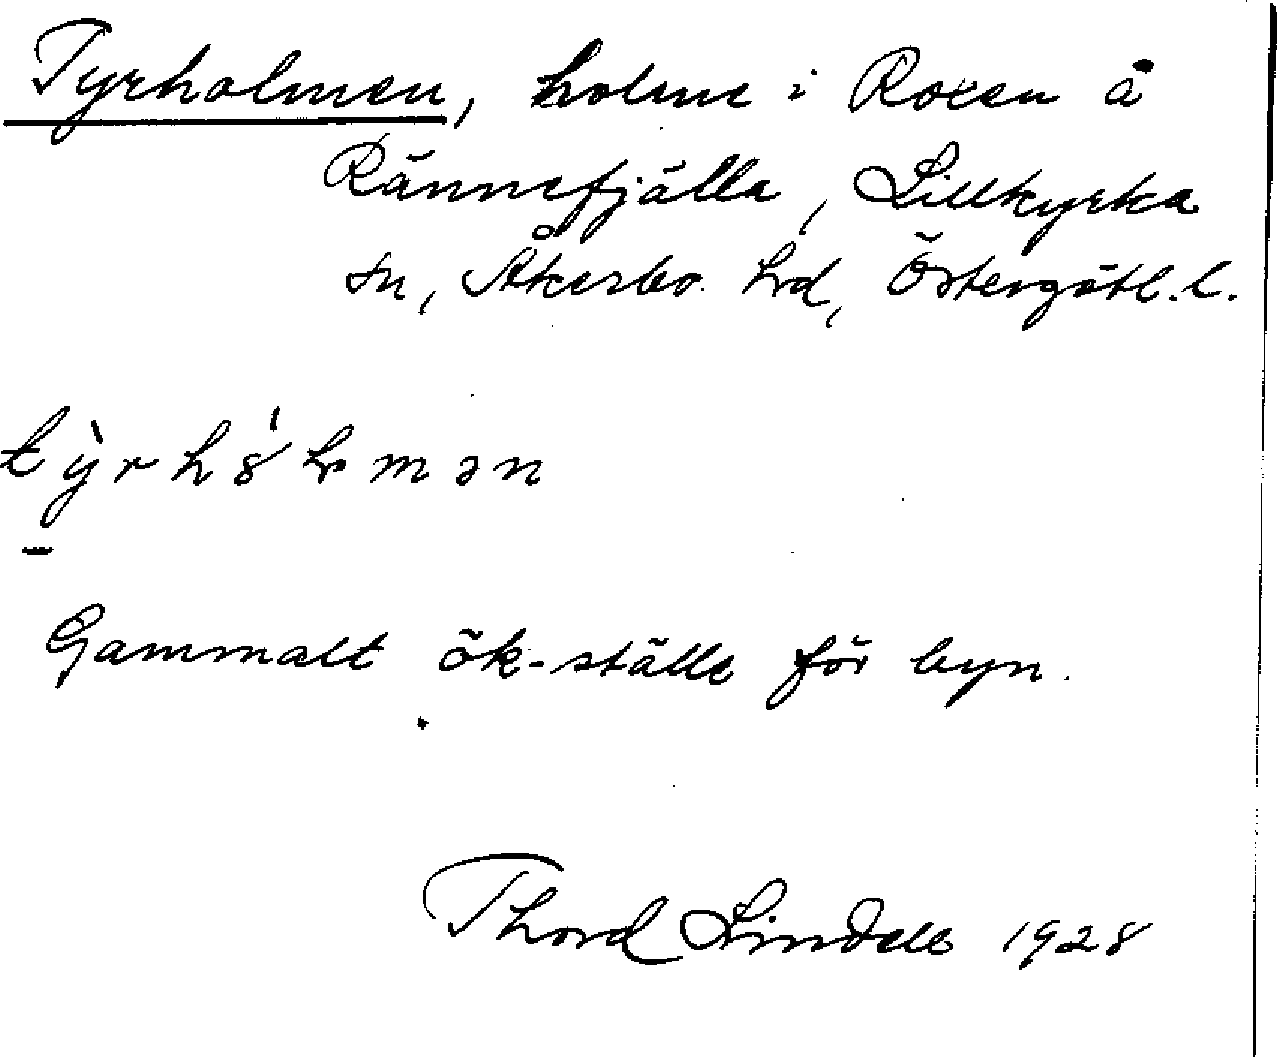 Tyrholmen, holme i Roxen å
Rännefjälla, Lillkyrka
sn, Åkerbo hd, Östergötl. l.
Gammalt ök-ställe för byn.
Thord Lindell 1928